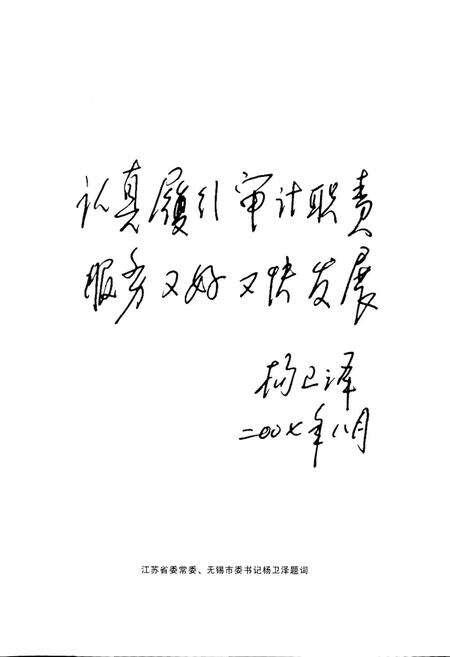 认真履行审计职责
服务又好又快发展
杨卫泽
二〇〇七年八月
江苏省委常委、无锡市委书记杨卫泽题词